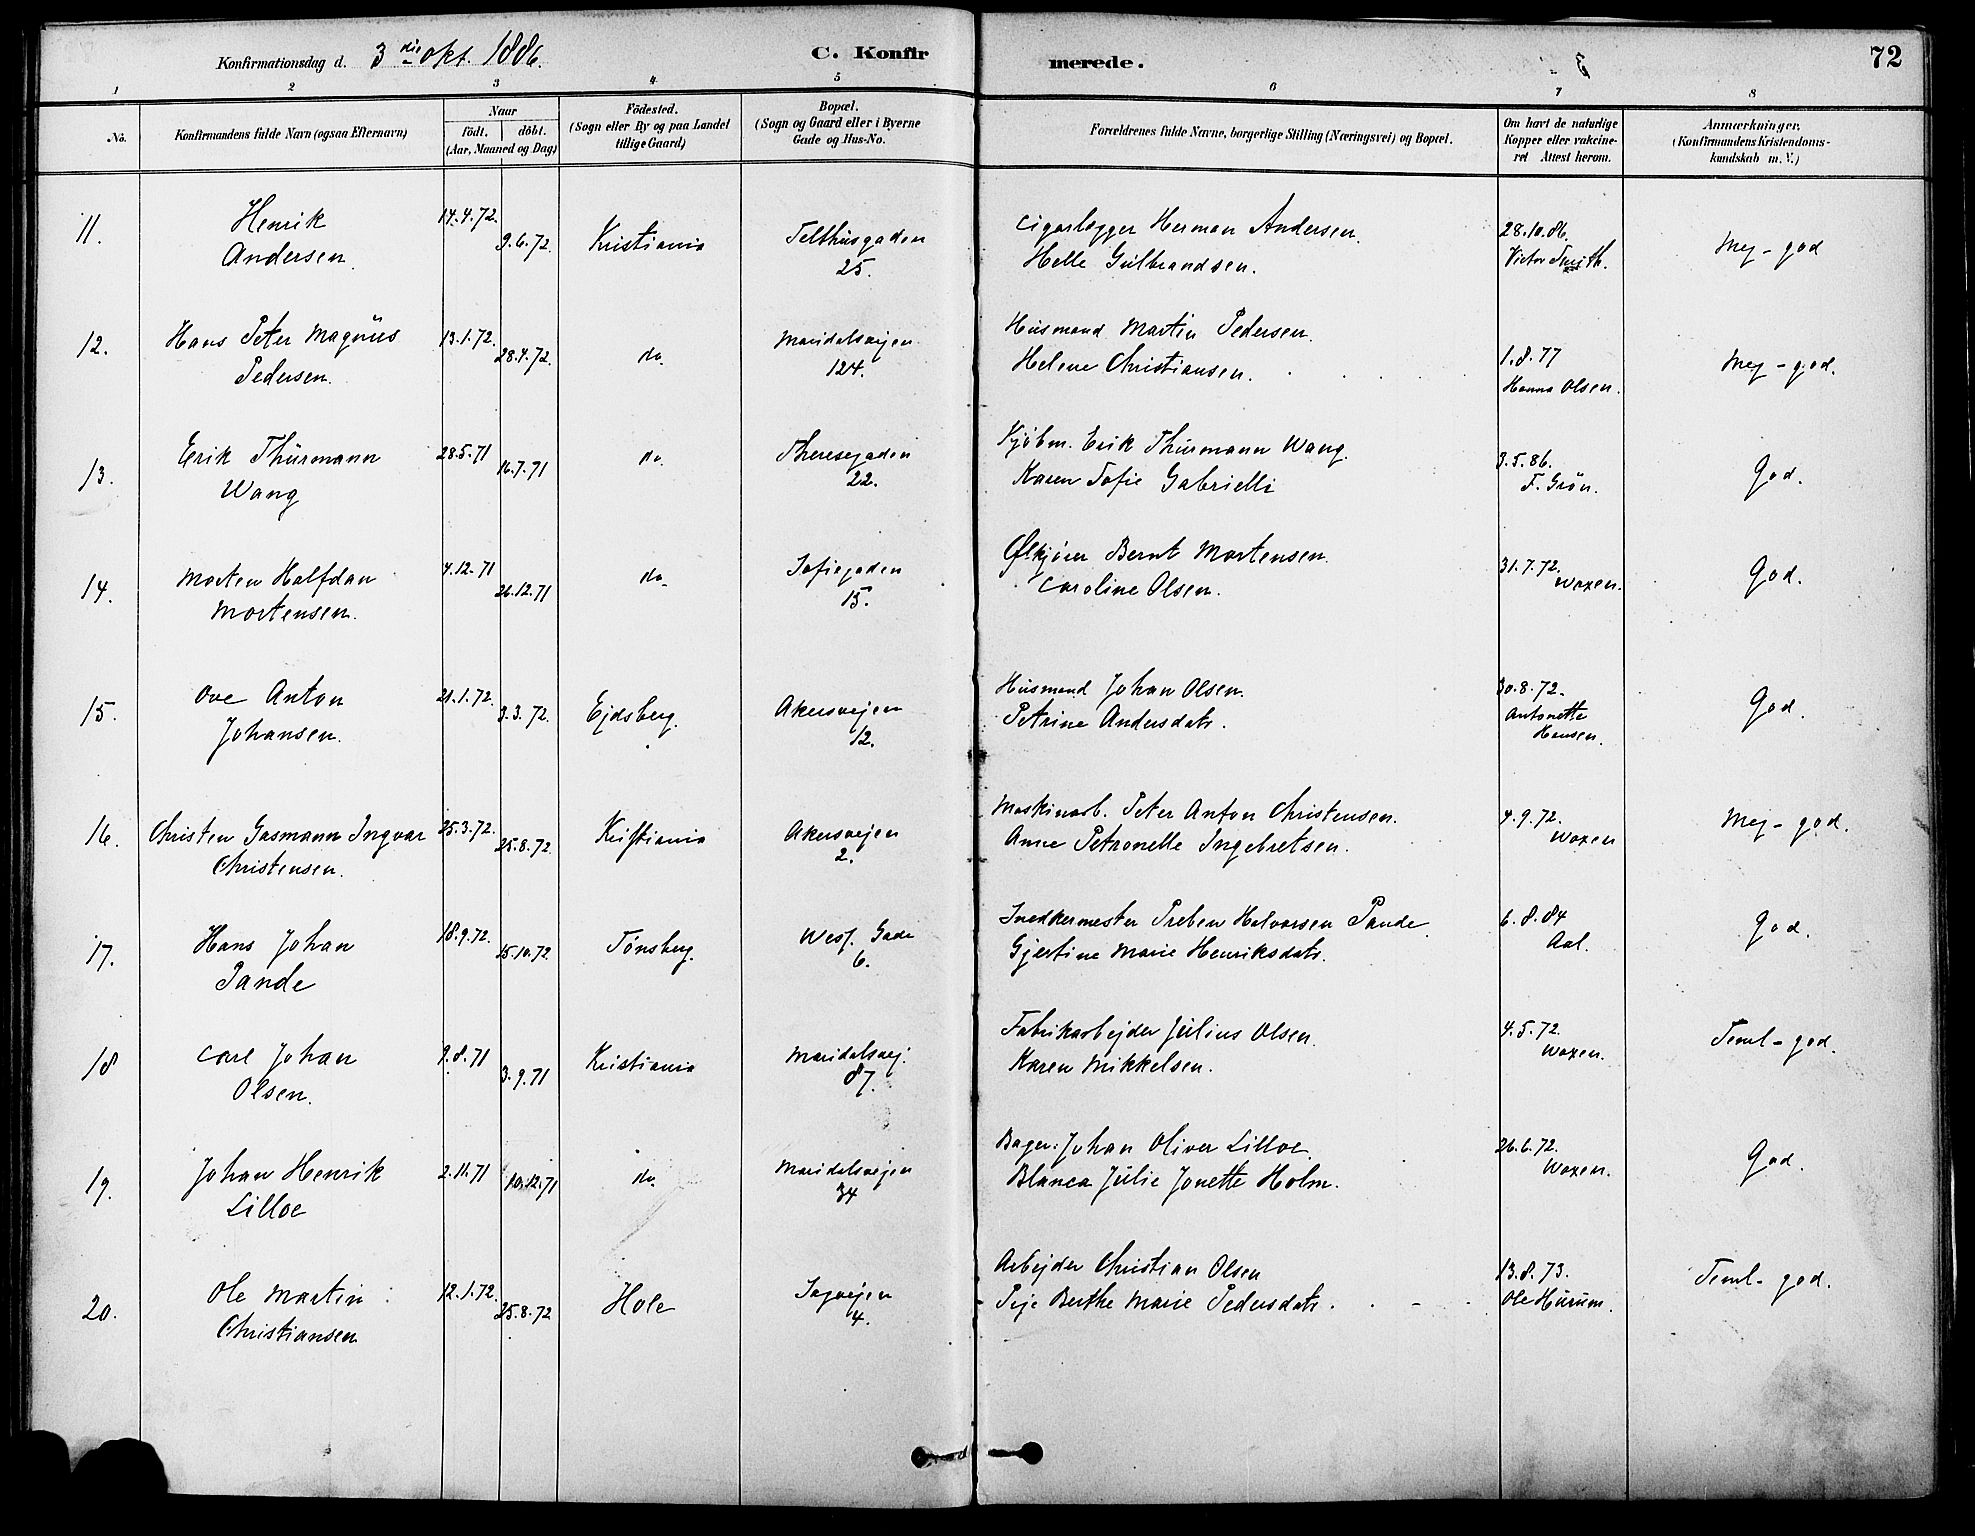 Konfirmationsdag d. 3die Okt. 1886.
C. Konfir
merede.
72
1 2 3 4 5 6 7 8
No.
Konfirmandens fulde Navn (ogsaa Efternavn)
Naar
födt. döbt.
(Aar, Maaned og Dag)
Födested.
(Sogn eller By og paa Landet
tillige Gaard)
Bopæl.
(Sogn og Gaard eller i Byerne
Gade og Hus-No.
Forældrenes fulde Navne, borgerlige Stilling (Næringsvei) og Bopæl.
Om havt de naturlige
Kopper eller vakcine-
ret Attest herom.
Anmærkninger,
(Konfirmandens Kristendoms-
kundskab m. V.)
11. Henrik 14.4.72. 9.6.72. Kristiania Telthusgaden Cigarlegger Herman Andersen. 28.10.86. Mej - god
Andersen. 25. Helle Gulbrandsen. Victor Smith.
12. Hans Peter Magnus 13.1.72. 28.4.72. do. Maridalsvejen Husmand Martin Pedersen. 1.8.77 Mej - god.
Pedersen. 124. Helene Christiansen. Hanna Olsen.
13. Erik Thurmann 28.5.71 16.7.71 do. Theresegaden Kjöbm. Erik Thurmann Wang. 3.5.86. God.
Wang 22. Karen Sofie Gabrielli F. Grön.
14. Morten Halfdan 4.12.71 26.12.71 do. Sofiegaden Ølkjører Bernt Mortensen. 31.7.72. God.
Mortensen. 15. Caroline Olsen. Woxen.
15. Ove Anton 21.1.72. 3.3.72. Ejdsberg. Akersvejen Husmand Johan Olsen. 30.8.72. God.
Johansen. 12. Petrine Andersdatr. Antonette
Hansen.
16. Christen Gasmann Ingvar 25.3.72. 25.8.72. Kristiania Akersvejen Maskinarb. Peter Anton Christensen. 4.9.72. Mej - god.
Christensen. 2. Anne Petronelle Ingebretsen. Woxen
17. Hans Johan 18.9.72. 15.10.72 Tönsberg. Wess. Gade Snedkermester Preben Halvorsen Pande. 6.8.84 God.
Pande 6. Gjertine Marie Henriksdatr. Aal.
18 Carl Johan 9.8.71 3.9.71 Kristiania Maridalsvej. Fabrikarbejder Julius Olsen. 4.5.72. Teml - god.
Olsen. 87. Karen Mikkelsen. Woxen.
19. Johan Henrik 2.11.71 10.12.71 do. Maridalsvejen Bager. Johan Oliver Lilloe. 26.6.72. God.
Lilloe 34 Blanca Julie Jonette Holm. Woxen.
20. Ole Martin 12.1.72. 25.8.72 Hole Sagvejen Arbejder Christian Olsen 13.8.73. Teml - god.
Christiansen 4. Pije Berthe Marie Pedersdatr. Ole Hurum.